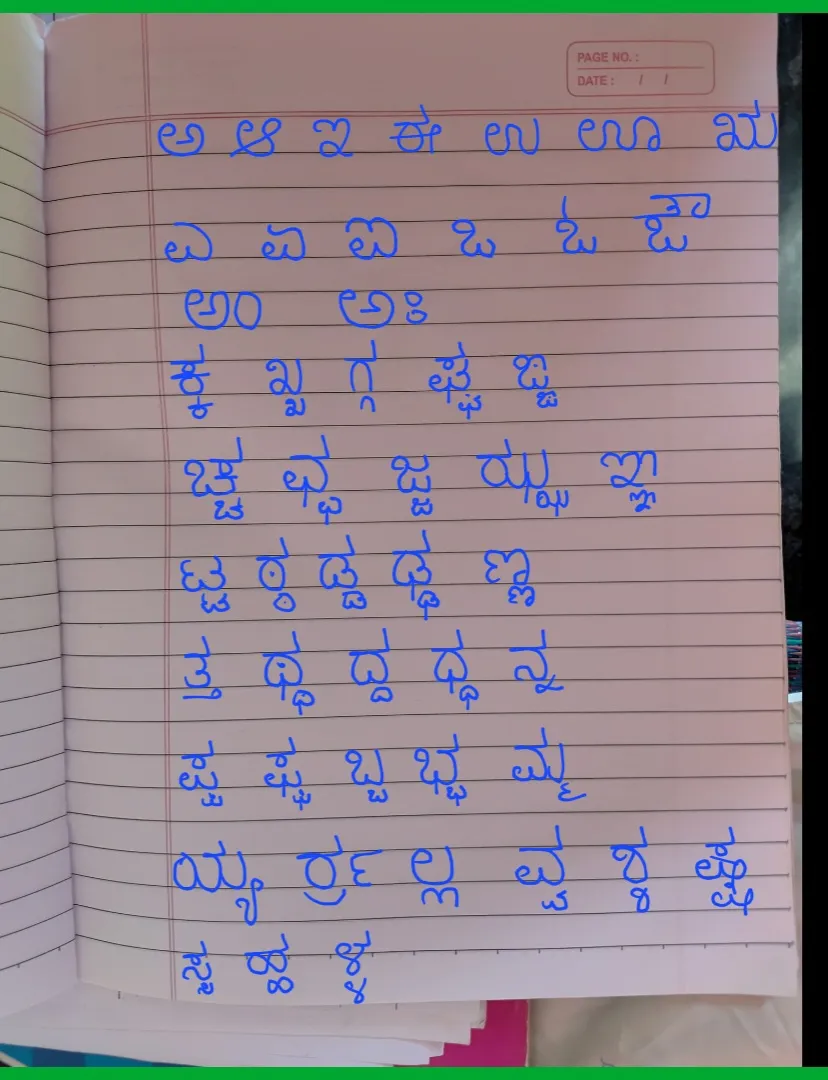 PAGE NO. :
DATE : / /
ಅ ಆ ಇ ಈ ಉ ಊ ಋ
ಎ ಏ ಐ ಒ ಓ ಔ
ಅಂ ಅಃ
ಕ್ಕ ಖ್ಖ ಗ್ಗ ಘ್ಘ ಙ್ಙ
ಚ್ಚ ಛ್ಛ ಜ್ಜ ಝ್ಝ ಞ್ಞ
ಟ್ಟ ಠ್ಠ ಡ್ಡ ಢ್ಢ ಣ್ಣ
ತ್ತ ಥ್ಥ ದ್ದ ಧ್ಧ ನ್ನ
ಪ್ಪ ಫ್ಫ ಬ್ಬ ಭ್ಭ ಮ್ಮ
ಯ್ಯ ರ್ರ ಲ್ಲ ವ್ವ ಶ್ಶ ಷ್ಷ
ಸ್ಸ ಹ್ಹ ಳ್ಳ